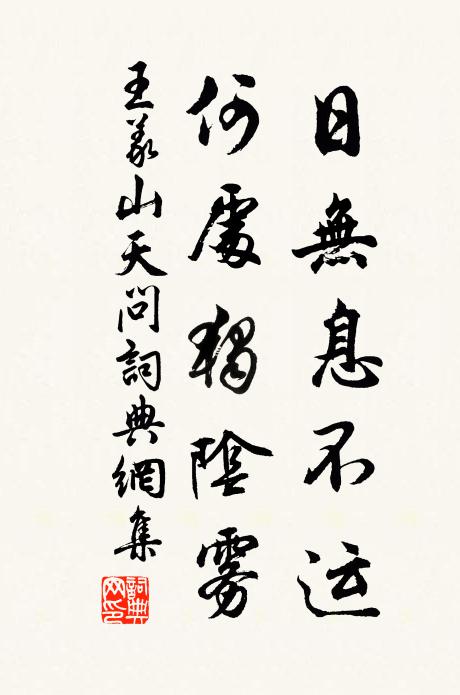 日無息不运
何處獨陰雾
王義山天問詞典網集
詞典网印